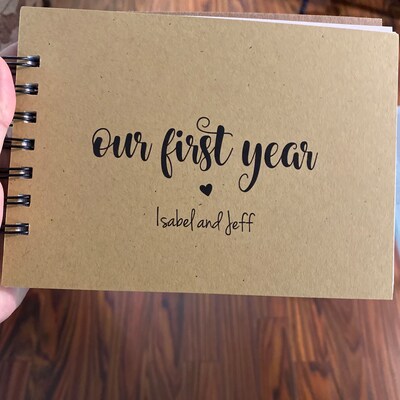 our first year
Isabel and Jeff